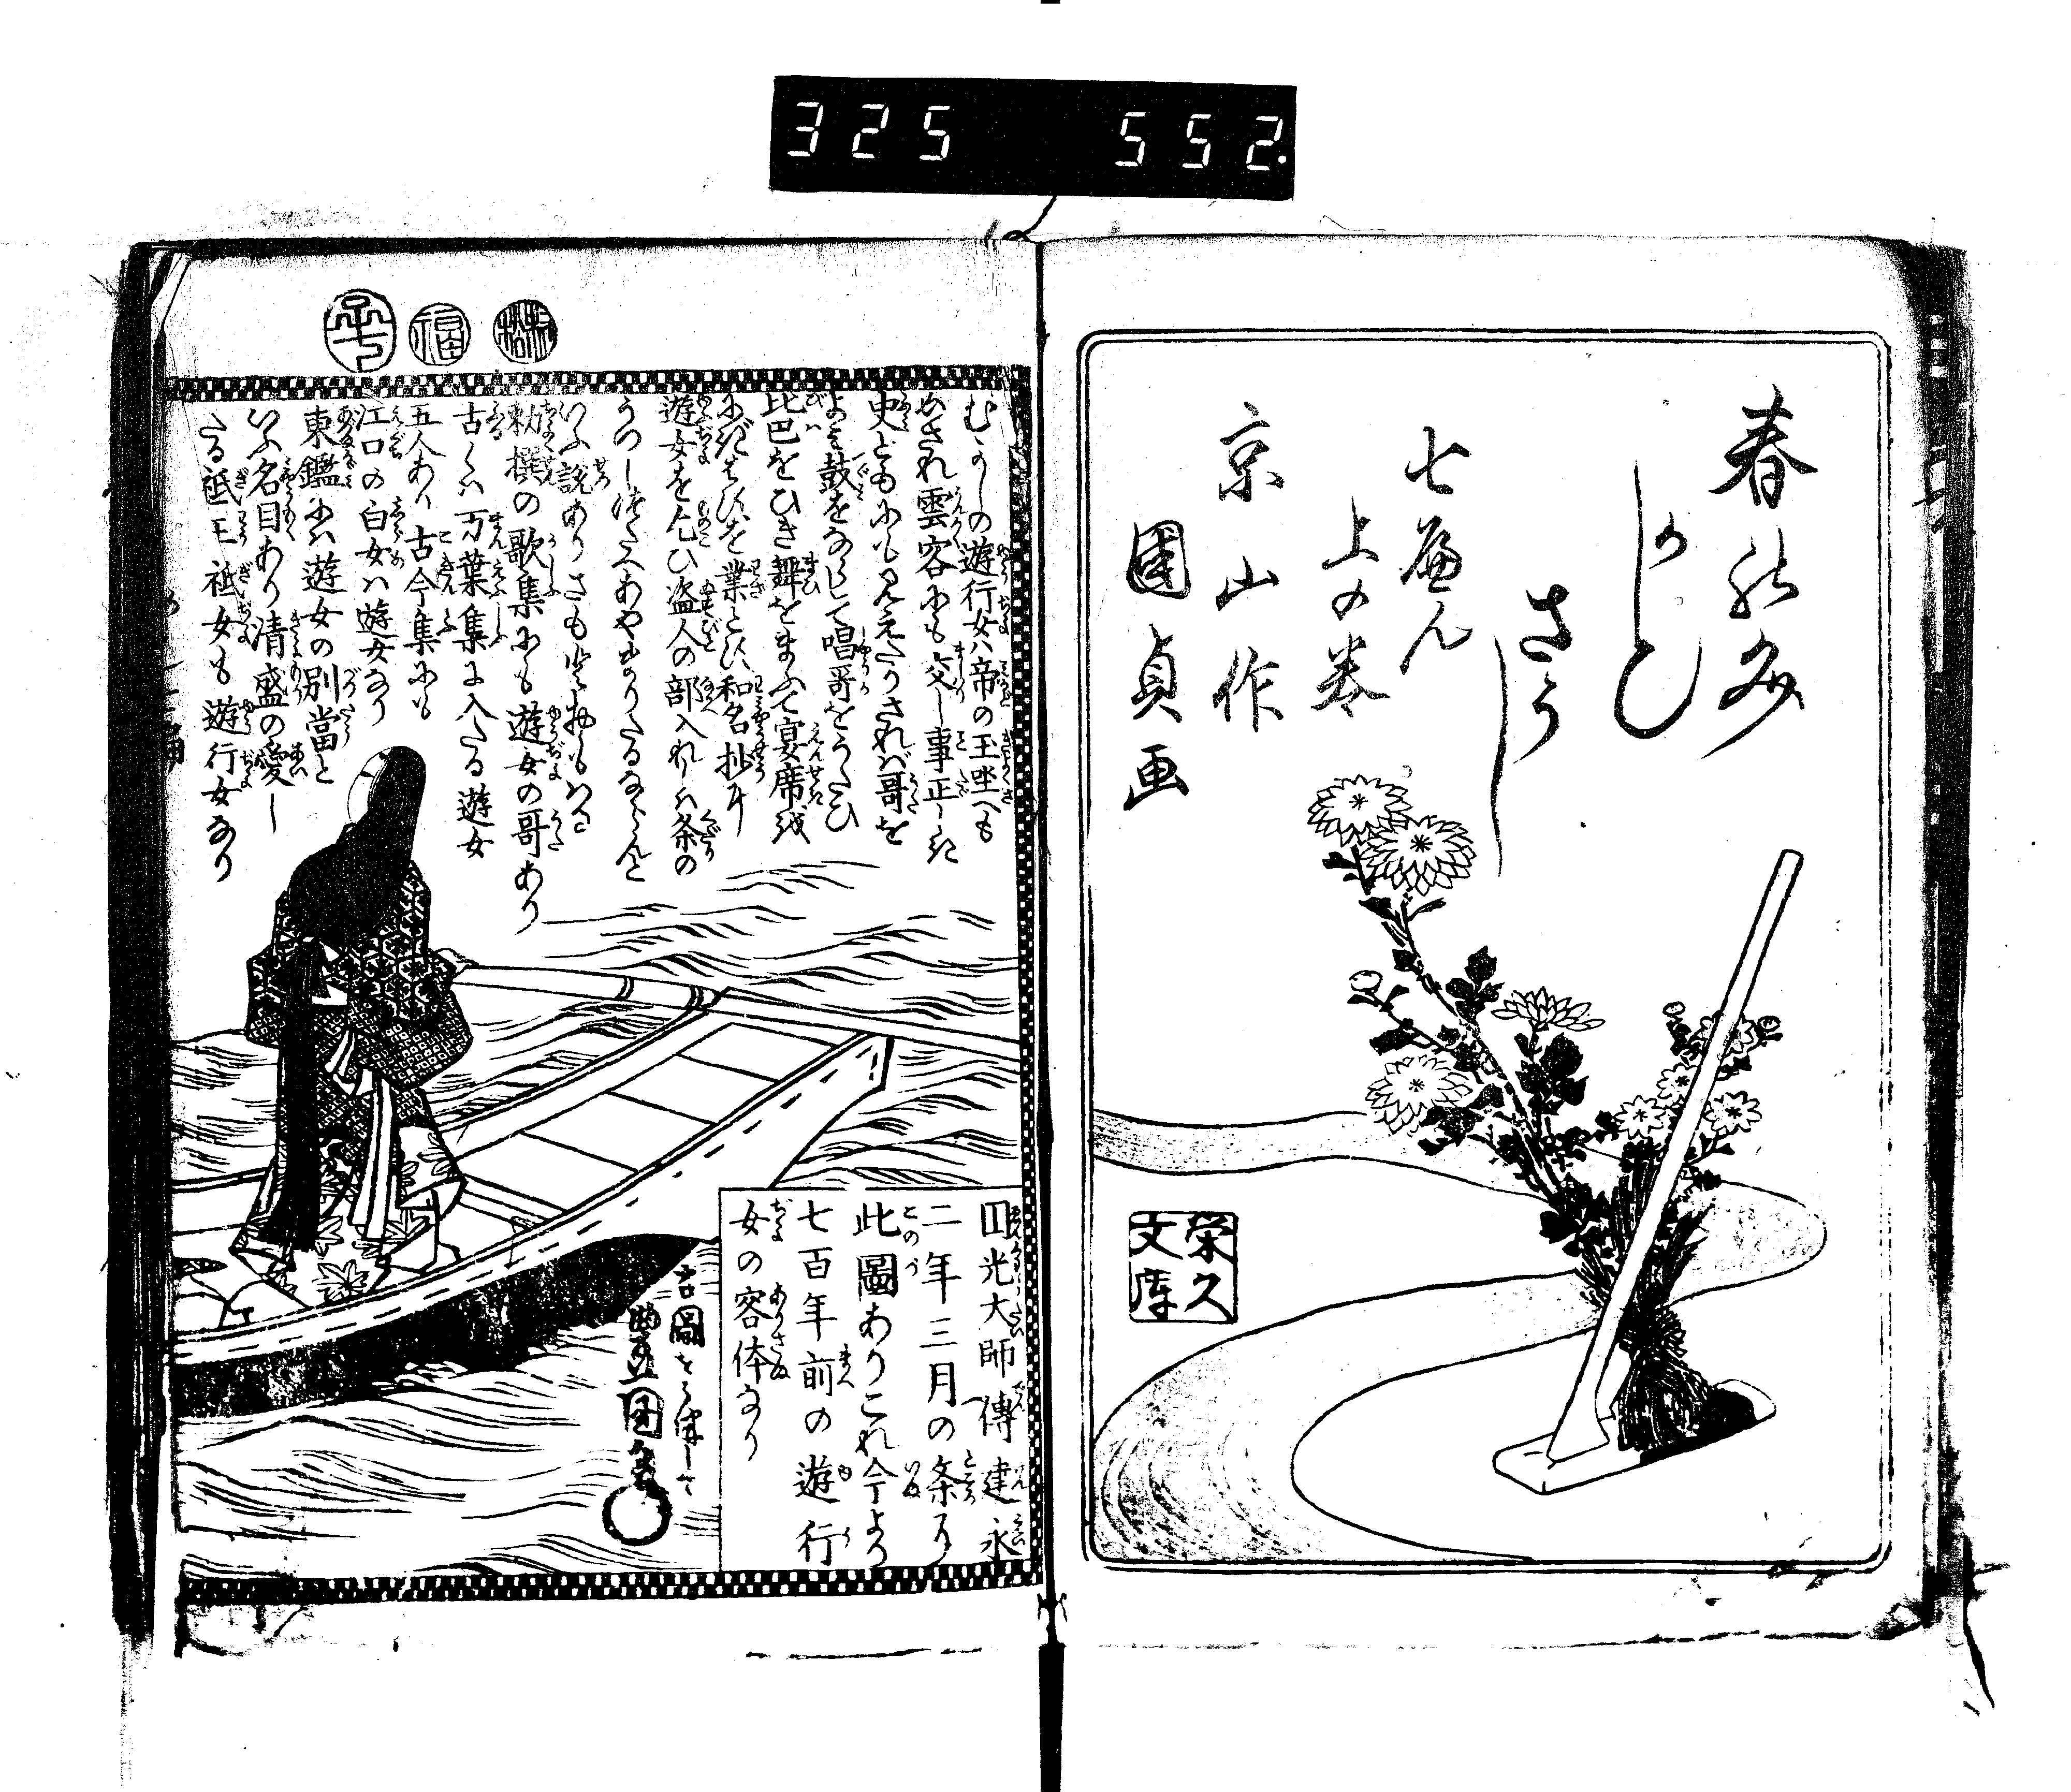 325 552.
春
さう
し
七へん
上の巻
京山作
國貞画
栄久
文庫
福
むかしの遊行女ハ帝の玉坐へも
めされ雲客にも交りし事正しき
史どもにも見えたりされバ哥を
よみ鼓をならして唱哥をうたひ
比巴をひき舞をまふて宴席
業とす和名抄に
遊女を乞ひ盗人の部入れしハ条の
うつしつたへあやまりたるならんと
いふ説ありさも
勅撰の歌集にも遊女の哥あり
古くハ万葉集に入たる遊女
五人あり古今集にも
江口の白女ハ遊女なり
東鑑にハ遊女の別當と
いふ名目あり清盛の愛し
たる祇王祇女も遊行女なり
光大師傳建永
二年三月の条に
此圖ありこれ今より
七百年前の遊行
女の容体なり
古圖を
豊国画